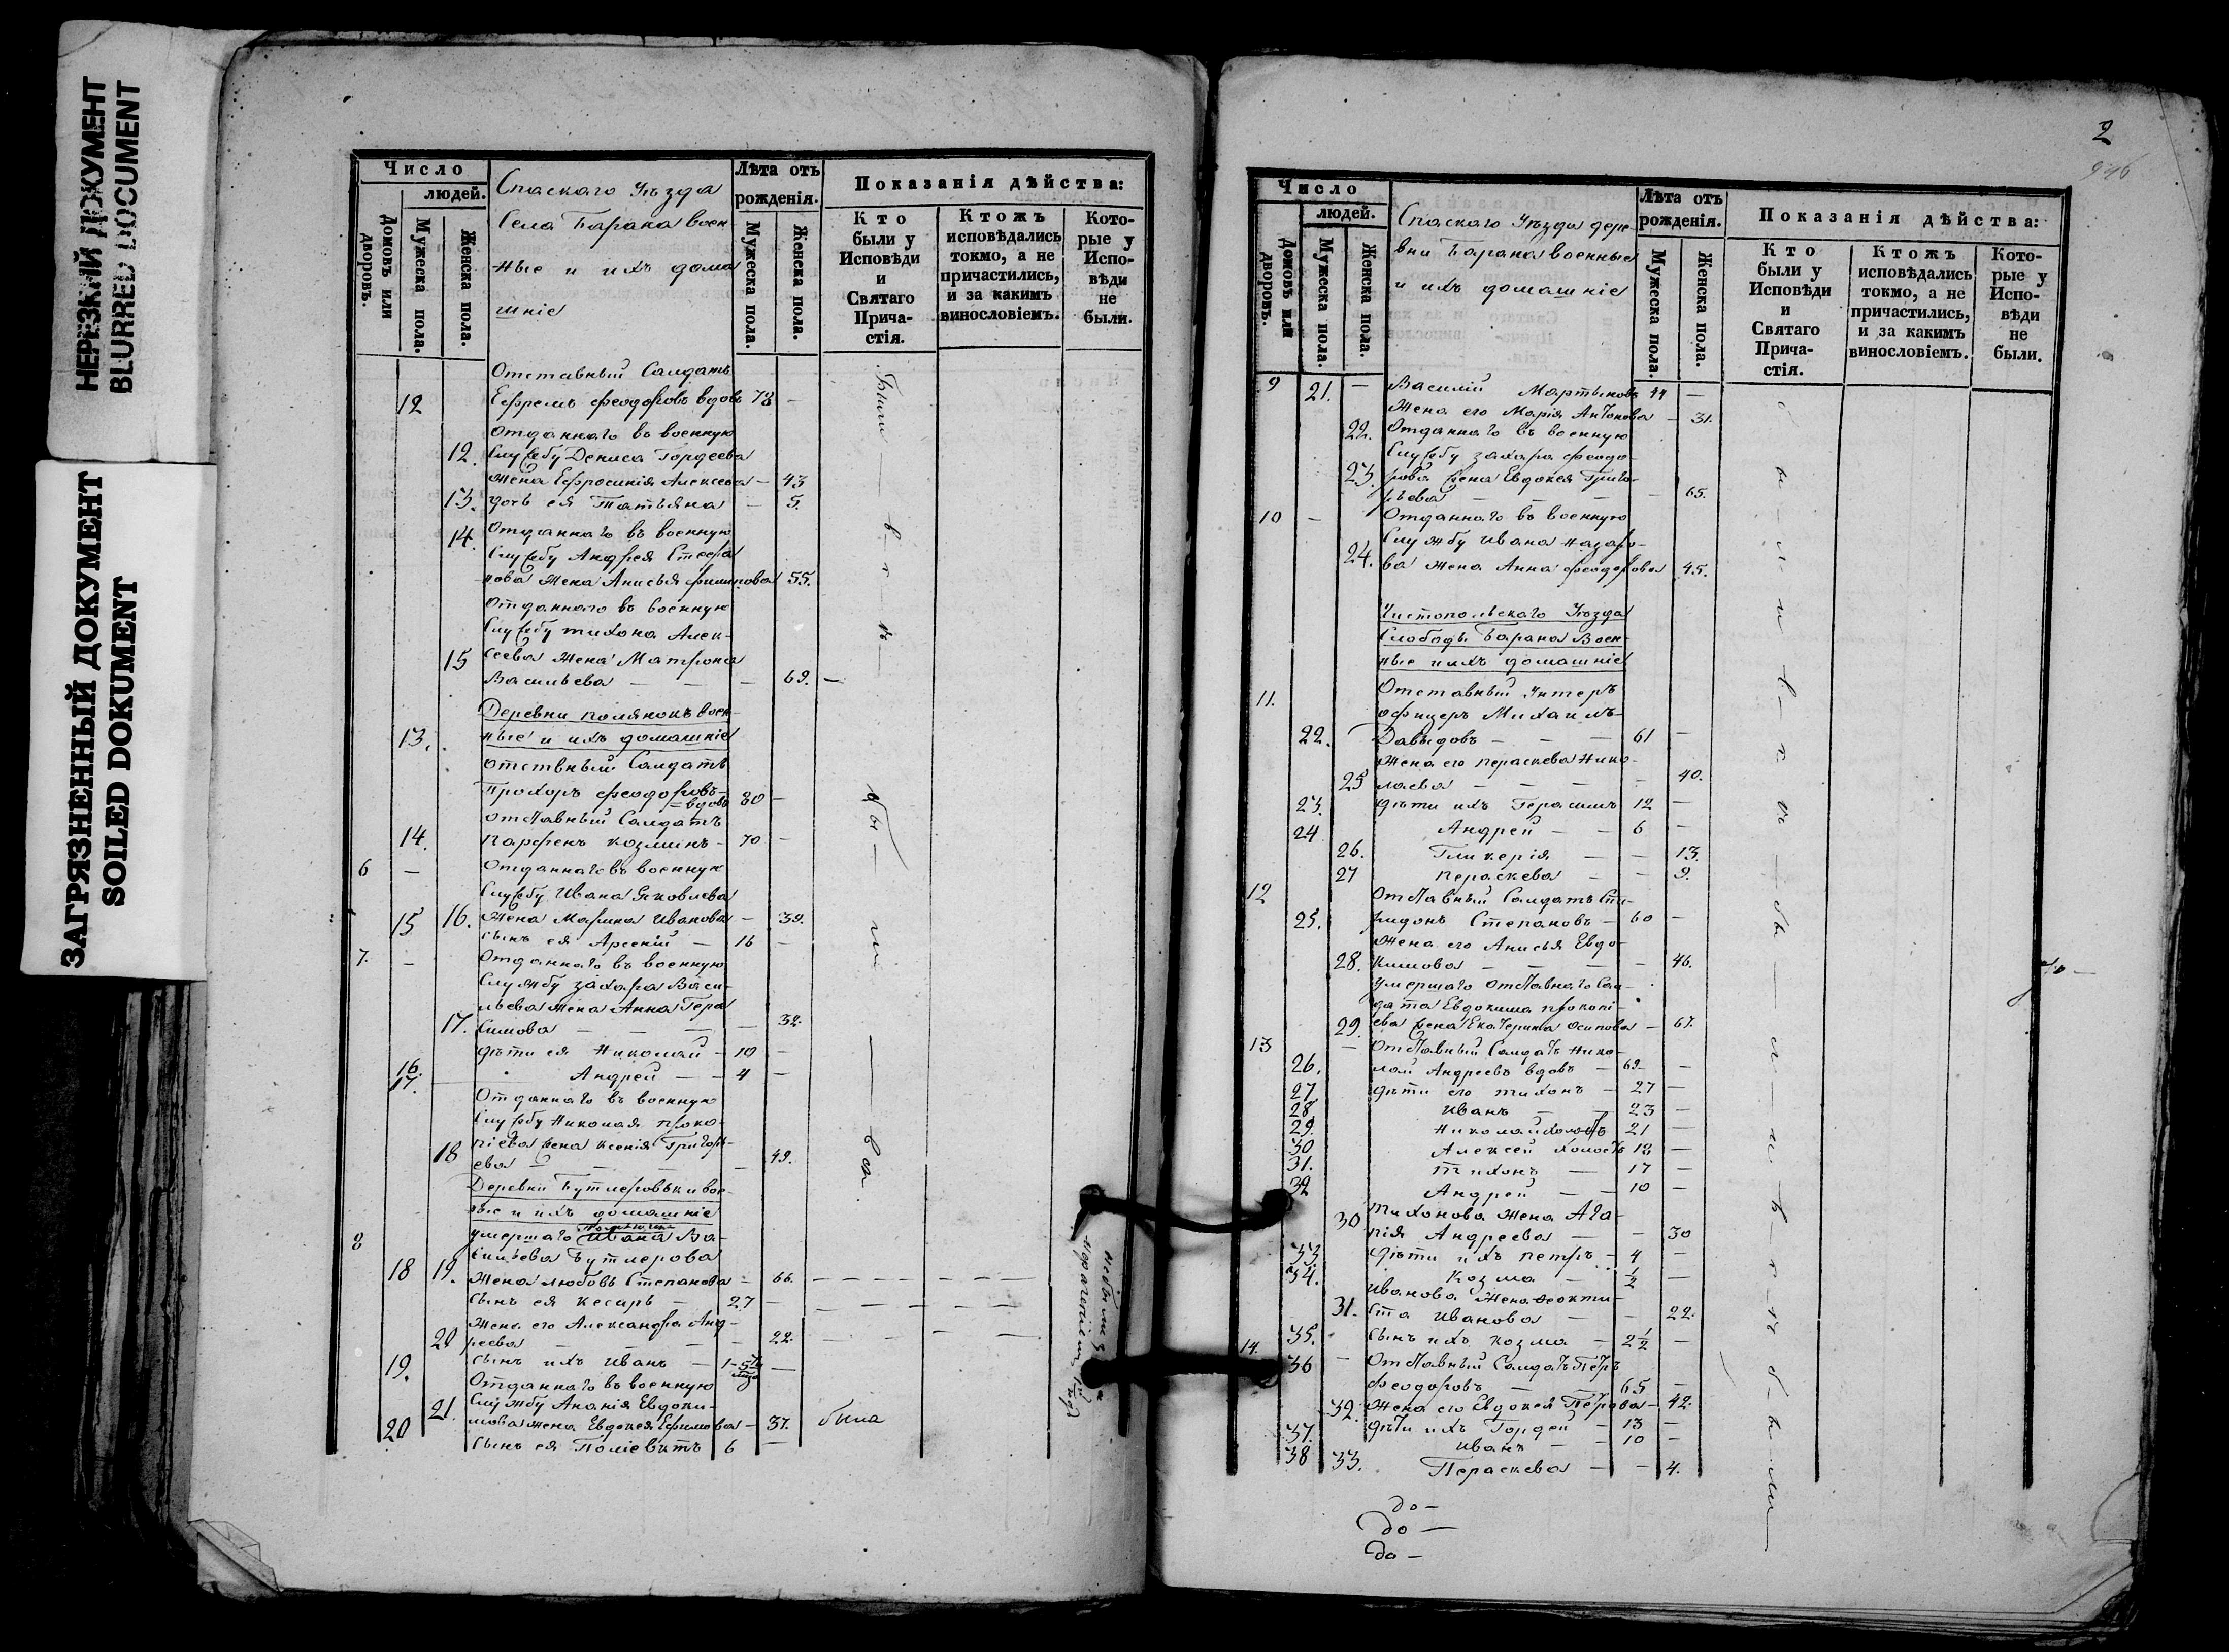 НЕРЕЗКИЙ ДОКУМЕНТ
BLURRED DOCUMENT
ЗАГРЯЗНЕННЫЙ ДОКУМЕНТ
SOILED DOKUMENT
Число
людей.
Домовъ или дворовъ.
Мужеска пола.
Женска пола.
Спаскаго Уѣзда
Села Барана воен-
ные и ихъ дома
шніе
Лѣта отъ
рожденія.
Мужеска пола.
Женска пола.
Показанія дѣйства:
Кто
были у
Исповѣди
и
Святаго
Прича-
стія.
Ктожъ
исповѣдались
токмо, а не
причастились,
и за какимъ
винословіемъ.
Кото-
рые у
Испо-
вѣди
не
были.
Отставный Солдатъ
12 Ефремъ Феодоровъ вдовъ 78 —
Отданнаго въ военную
12. Службу Дениса Гордеева
жена Ефросинія Алексеева — 43
13. дочь ея Татьяна — 5.
Отданнаго въ военную
14. Службу Андрея Стефа
нова жена Анисья Филиппова 55.
Отданнаго въ военную
Службу Тихона Алек-
15 сеева жена Матрона
Васильева — — — 69. —
Деревни Полянокъ воен-
13. ные и ихъ домашніе
Отствный Солдатъ
Прохоръ Феодоровъ —
= вдовъ 80 —
Отставный Солдатъ
14. Парфенъ Козминъ — 70 —
6 — Отданнаго въ военную
Службу Ивана Яковлева
16. жена Марина Иванова — 39.
15 сынъ ея Арсеній — 16 —
7. — Отданнаго въ военную
Службу Захара Васи-
льева жена Анна Гера
17. симова — — — — 32.
16. дѣти ея Николай — 10 —
17. Андрей — — 4 —
Отданнаго въ военную
Службу Николая Проко-
піева жена Ксенія Григорь-
18 ева — — — — 49.
Деревни Бутлеровки вое-
ные и ихъ домашніе
8 умершаго Ивана Ва-
сильева Бутлерова
18 19. жена Любовь Степанова — 66. — — — — — —
сынъ ея Кесарь — 27 — — — — — —
жена его Александра Анд-
20 реева — — — — 22. — — — —
19. сынъ ихъ Иванъ —
Отданнаго въ военную
21. Службу Ананія Евдоки-
мова жена Евдокея Ефимова — 37. была
20 сынъ ея Поліевктъ 6 —
2
Число
людей.
Домовъ или дворовъ.
Мужеска пола.
Женска пола.
Спаскаго Уѣзда дере-
вни Барана военные
и ихъ домашніе
Лѣта отъ
рожденія.
Мужеска пола.
Женска пола.
Показанія дѣйства:
Кто
были у
Исповѣди
и
Святаго
Прича-
стія.
Ктожъ
исповѣдались
токмо, а не
причастились,
и за какимъ
винословіемъ.
Кото-
рые у
Испо-
вѣди
не
были.
9 21. — Василій Мартыновъ 44 —
жена его Марія Антонова — 31.
22. Отданнаго въ военную
Службу Захара Феодо-
23. рова жена Евдокея Григо-
рьева — — — — 65.
10 — Отданнаго въ военную
Службу Ивана Назаро-
24. ва жена Анна Феодорова 45.
Чистопольскаго Уѣзда
Слободы Барана Воен-
ные и ихъ домашніе
11. Отставный Унтеръ
офицеръ Михаилъ
22. Давыдовъ — — — 61 —
жена его Пераскева Нико-
25 лаева — — — — 40.
23. дѣти ихъ Герасимъ 12 —
24 Андрей — — 6 —
26. Гликерія — — 13.
27 Пераскева — — 9.
12 Отставный Солдатъ Спи-
25. ридонъ Степановъ — 60 —
жена его Анисья Евдо-
28. кимова — — — — 46.
умершаго отставнаго Сол-
дата Евдокима Прокопі-
29. ева жена Екатерина Осипова — 67.
13 — Отставный Солдатъ Нико-
26. лай Андреевъ вдовъ — 69. —
27 дѣти его Тихонъ — 27 —
28 Иванъ — — 23 —
29. Николай холостъ 21 —
30 Алексей холостъ 18 —
31. Тихонъ — 17 —
32 Андрей — — 10 —
30 Тихонова жена Ага-
пія Андреева — — 30
33. дѣти ихъ Петръ — 4 —
34. Козма — ½ —
Иванова жена Феокти-
31. ста Иванова — — 22.
35. сынъ ихъ Козма — 2½ —
14. 36 — Отставный Солдатъ Петръ
Феодоровъ — — 65 —
32. жена его Евдокея Петрова — 42.
37. дѣти ихъ Гордей — 13 —
38 Иванъ — — 10 —
33. Пераскева — — 4.
до —
до —
до —